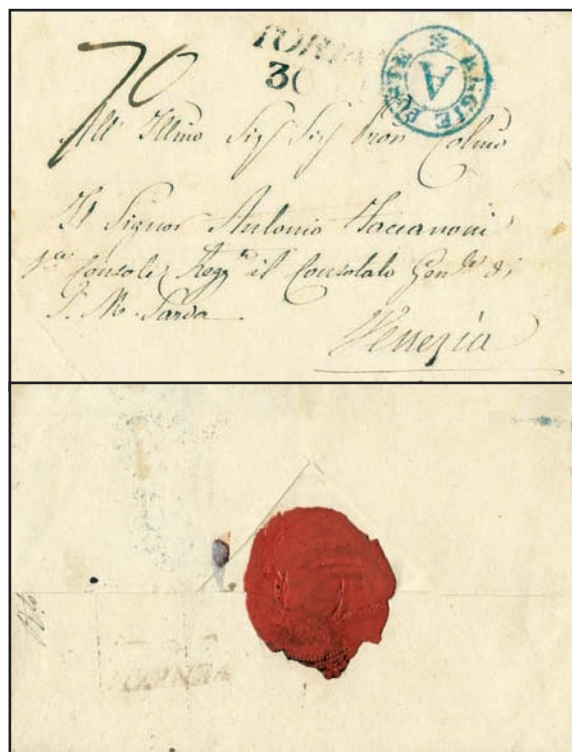 70
TORI
30
REGIE POSTE
A
All' Illmo Sig.r Sig.r Pron Colmo
Il Signor Antonio Faccanoni
Console Regg.te il Consolato Gen.le di
S. M. Sarda
Venezia